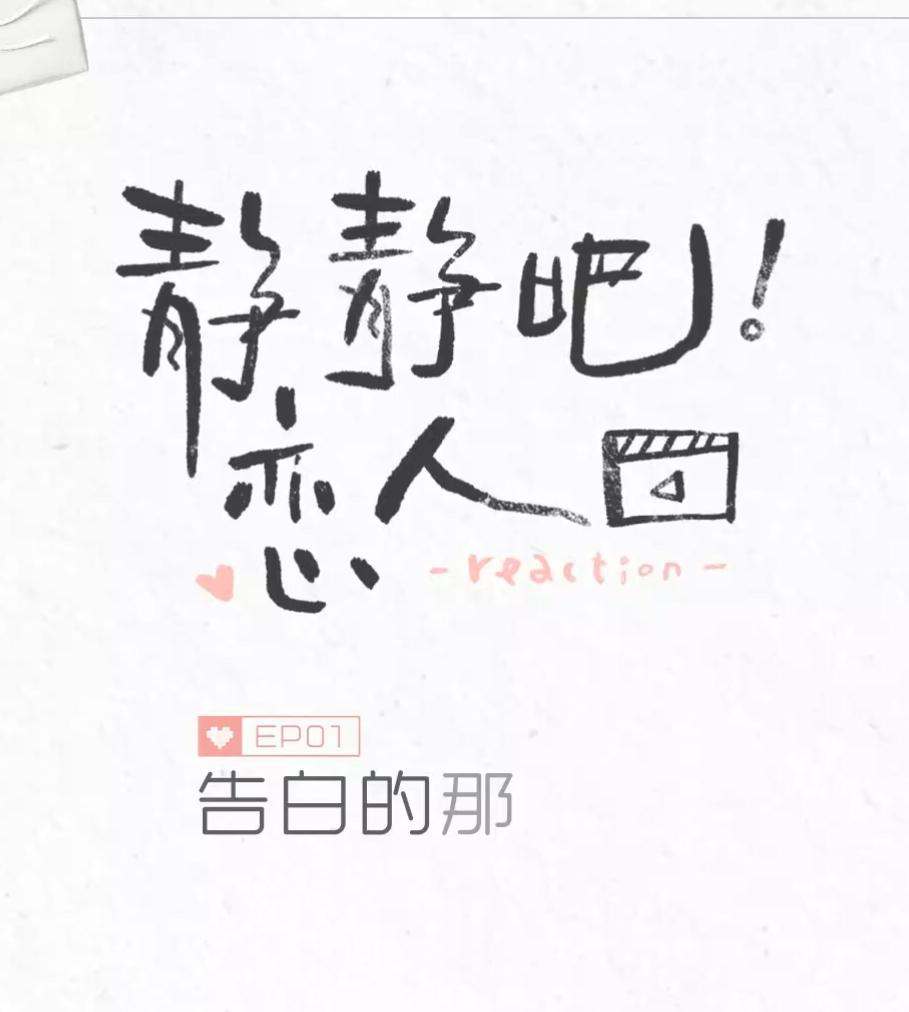 静静吧!
恋人
-reaction-
EP01
告白的那